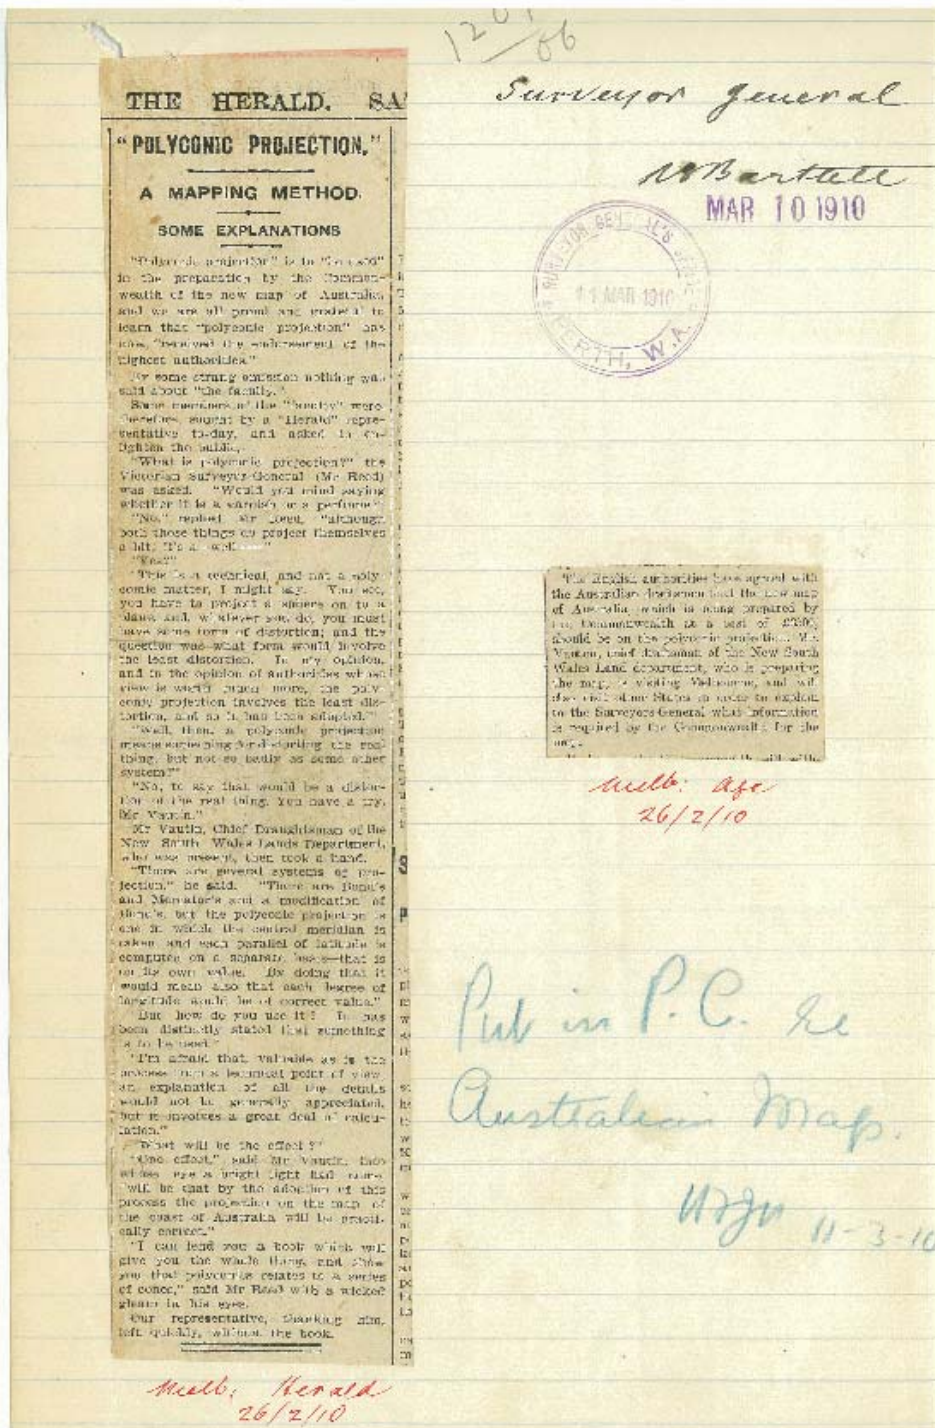 1201/06
THE HERALD. SA
"POLYCONIC PROJECTION."
A MAPPING METHOD.
SOME EXPLANATIONS
"Polyconic projection" is to "be used"
in the preparation by the Common-
wealth of the new map of Australia,
and we are all proud and grateful to
learn that "polyconic projection" has
now "received the endorsement of the
highest authorities."
By some strang omission nothing was
said about "the faculty."
Some members of the "faculty" were
therefore sought by a "Herald" repre-
sentative to-day, and asked to en-
lighten the public.
"What is polyconic projection?" the
Victorian Surveyor-General (Mr Reed)
was asked. "Would you mind saying
whether it is a varnish or a perfume?"
"No," replied Mr Reed, "although
both those things do project themselves
a bit. It's a—well——"
"Yes?"
"This is a technical, and not a poly-
comic matter, I might say. You see,
you have to project a sphere on to a
plane and, whatever you do, you must
have some form of distortion; and the
question was what form would involve
the least distortion. In my opinion,
and in the opinion of authorities whose
view is worth much more, the poly-
conic projection involves the least dis-
tortion, and so it has been adopted."
"Well, then, a polyconic projection
means something for distorting the real
thing, but not so badly as some other
system?"
"No, to say that would be a distor-
tion of the real thing. You have a try,
Mr Vautin."
Mr Vautin, Chief Draughtsman of the
New South Wales Lands Department,
who was present, then took a hand.
"There are several systems of pro-
jection," he said. "There are Bond's
and Mercator's and a modification of
Bond's, but the polyconic projection is
one in which the central meridian is
taken and each parallel of latitude is
computed on a separate basis—that is
on its own value. By doing that it
would mean also that each degree of
longitude would be of correct value."
"But how do you use it? It has
been distinctly stated that something
is to be used."
"I'm afraid that, valuable as is the
process from a technical point of view
an explanation of all the details
would not be generally appreciated,
but it involves a great deal of calcu-
lation."
"What will be the effect?"
"One effect," said Mr Vautin, into
whose eye a bright light had come
"will be that by the adoption of this
process the projection on the map of
the coast of Australia will be practi-
cally correct."
"I can lend you a book which will
give you the whole thing, and show
you that polyconics relates to a series
of cones," said Mr Reed with a wicked
gleam in his eyes.
Our representative, thanking him,
left quickly, without the book.
Melb: Herald
26/2/10
Surveyor General
W Bartlett
MAR 10 1910
SURVEYOR GENERAL'S OFFICE
11 MAR 1910
PERTH, W.A.
The English authorities have agreed with
the Australian draftsmen that the new map
of Australia which is being prepared by
the Commonwealth at a cost of
should be on the polyconic projection. Mr.
Vautin, chief draftsman of the New South
Wales Land department, who is preparing
the map, is visiting Melbourne, and will
also visit other States in order to explain
to the Surveyors-General what information
is required by the Commonwealth for the
map.
Melb: Age
26/2/10
Put in P.C. re
Australian Map.
11-3-10